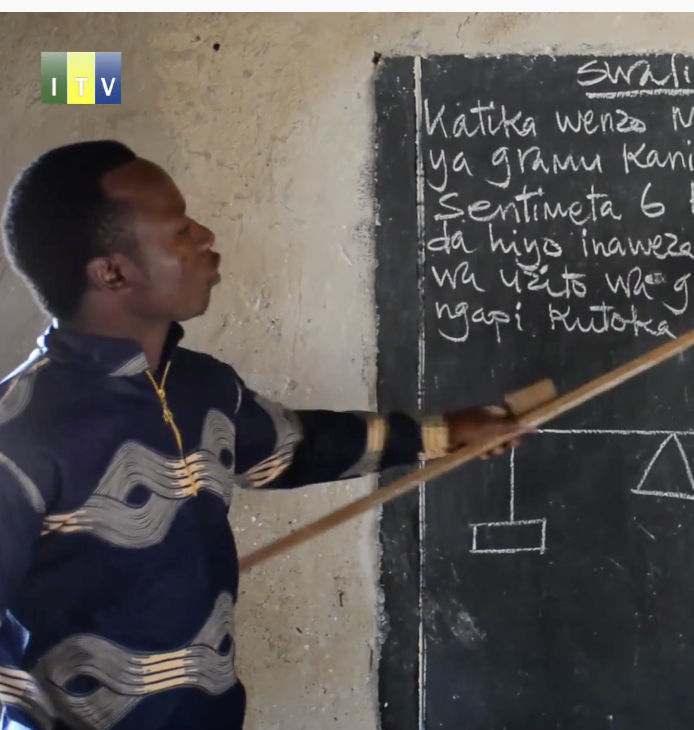 ITV
swali
Katika wenzo
ya gramu Kani
Sentimeta 6
da hiyo inaweza
wa uzito wa g
ngapi kutoka